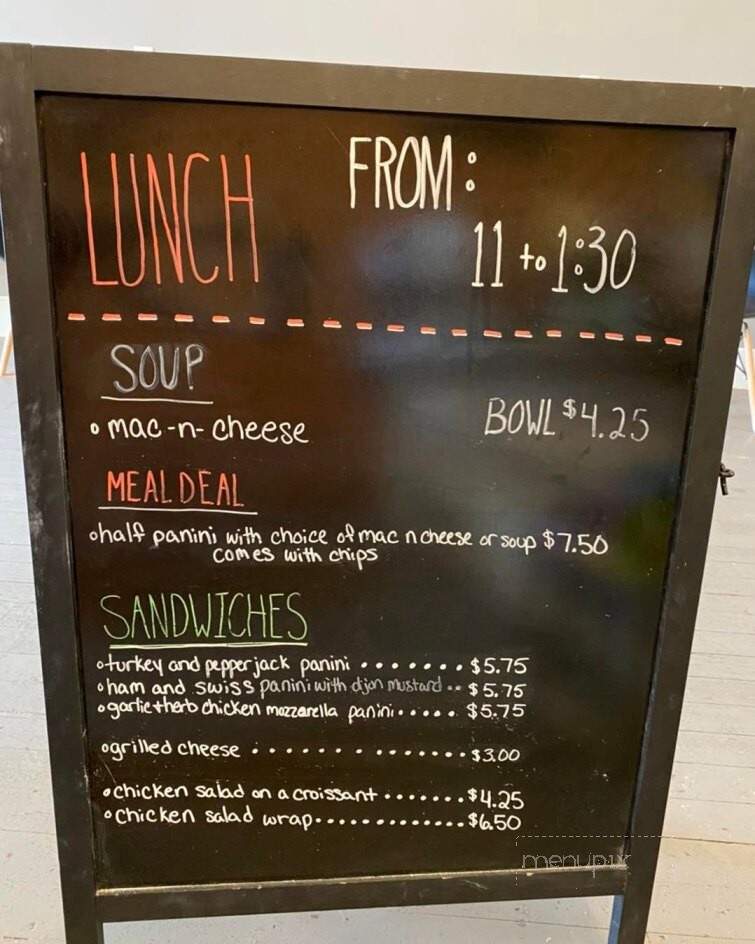 LUNCH FROM:
11 to 1:30
SOUP
mac-n-cheese BOWL $4.25
MEAL DEAL
half panini with choice of mac n cheese or soup $7.50
comes with chips
SANDWICHES
turkey and pepperjack panini ....... $5.75
ham and swiss panini with dijon mustard .. $5.75
garlic+herb chicken mozzarella panini ..... $5.75
grilled cheese ............. $3.00
chicken salad on a croissant ....... $4.25
chicken salad wrap ............. $6.50
menupix